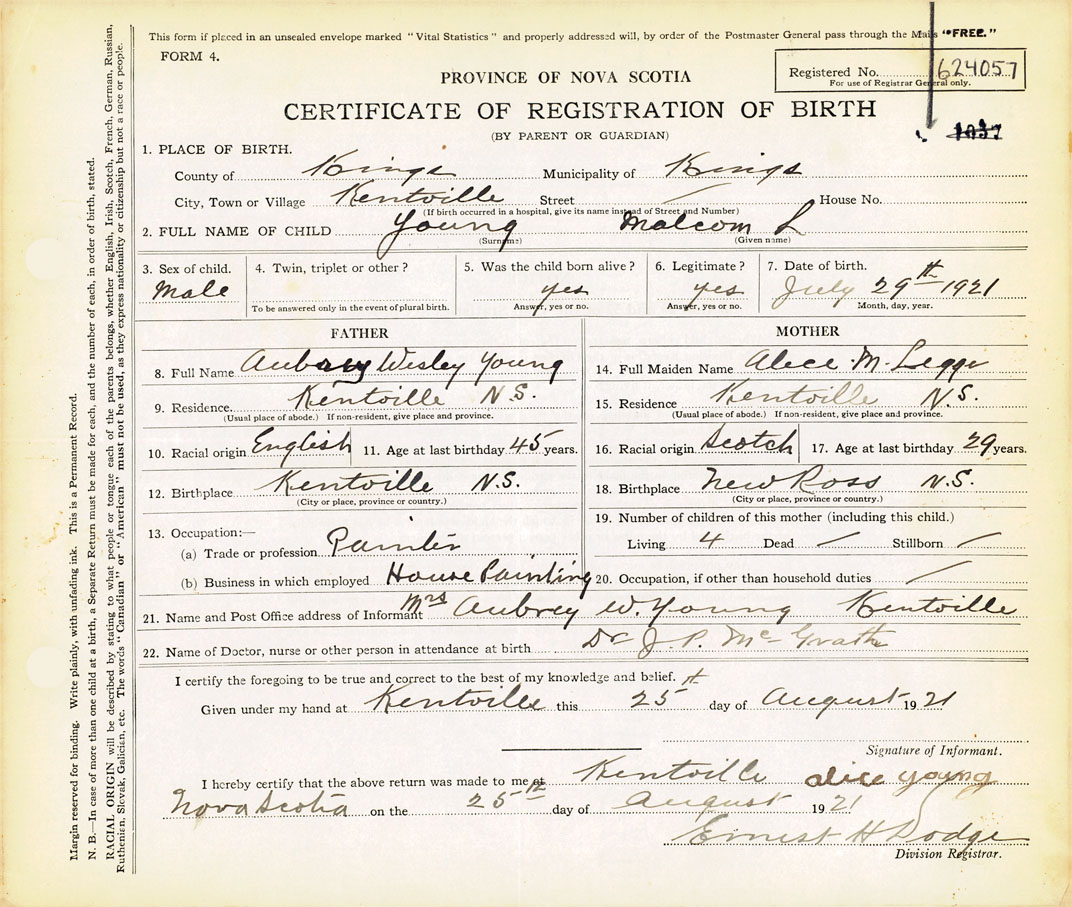 This form if placed in an unsealed envelope marked "Vital Statistics" and properly addressed will, by order of the Postmaster General pass through the Mails "FREE."
FORM 4.
PROVINCE OF NOVA SCOTIA
Registered No. 624057
For use of Registrar General only.
CERTIFICATE OF REGISTRATION OF BIRTH
(BY PARENT OR GUARDIAN)
1. PLACE OF BIRTH.
County of Kings Municipality of Kings
City, Town or Village Kentville Street / House No.
(If birth occurred in a hospital, give its name instead of Street and Number)
2. FULL NAME OF CHILD Young Malcom L
(Surname) (Given name)
3. Sex of child. 4. Twin, triplet or other? 5. Was the child born alive? 6. Legitimate? 7. Date of birth.
Male yes yes July 29th 1921
To be answered only in the event of plural birth. Answer, yes or no. Answer, yes or no. Month, day, year.
FATHER
8. Full Name Aubrey Wesley Young
9. Residence. Kentville N.S.
(Usual place of abode.) If non-resident, give place and province.
10. Racial origin English 11. Age at last birthday 45 years.
12. Birthplace Kentville N.S.
(City or place, province or country.)
13. Occupation:—
(a) Trade or profession Painter
(b) Business in which employed House Painting
MOTHER
14. Full Maiden Name Alice M. Legge
15. Residence Kentville N.S.
(Usual place of abode.) If non-resident, give place and province.
16. Racial origin Scotch 17. Age at last birthday 29 years.
18. Birthplace New Ross N.S.
(City or place, province or country.)
19. Number of children of this mother (including this child.)
Living 4 Dead / Stillborn /
20. Occupation, if other than household duties /
21. Name and Post Office address of Informant Mrs Aubrey W. Young Kentville
22. Name of Doctor, nurse or other person in attendance at birth Dr J. P. McGrath
I certify the foregoing to be true and correct to the best of my knowledge and belief.
Given under my hand at Kentville this 25th day of August 1921
Signature of Informant.
I hereby certify that the above return was made to me at Kentville alice young
Nova Scotia on the 25th day of August 1921
Ernest H Dodge
Division Registrar.
Margin reserved for binding. Write plainly, with unfading ink. This is a Permanent Record.
N. B.—In case of more than one child at a birth, a Separate Return must be made for each, and the number of each, in order of birth, stated.
RACIAL ORIGIN will be described by stating to what people or tongue each of the parents belongs, whether English, Irish, Scotch, French, German, Russian,
Ruthenian, Slovak, Galician, etc. The words "Canadian" or "American" must not be used, as they express nationality or citizenship but not a race or people.